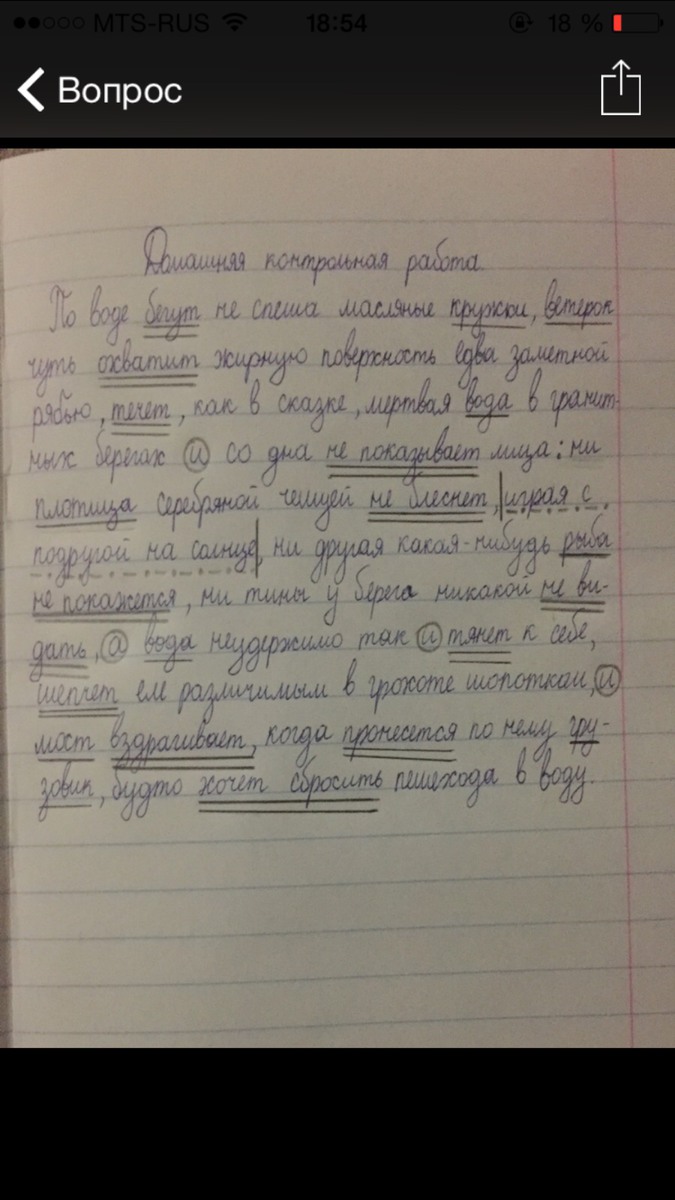 MTS-RUS 18:54 18 %
Вопрос
Домашняя контрольная работа.
По воде бегут не спеша масляные кружки, ветерок
чуть охватит жирную поверхность едва заметной
рябью, течет, как в сказке, мертвая вода в гранит-
ных берегах и со дна не показывает лица: ни
плотица серебряной чешуей не блеснет, играя с
подругой на солнце, ни другая какая-нибудь рыба
не покажется, ни тины у берега никакой не ви-
дать, а вода неудержимо так и тянет к себе,
шепчет еле различимым в грохоте шопотком, и
мост вздрагивает, когда пронесется по нему гру-
зовик, будто хочет сбросить пешехода в воду.